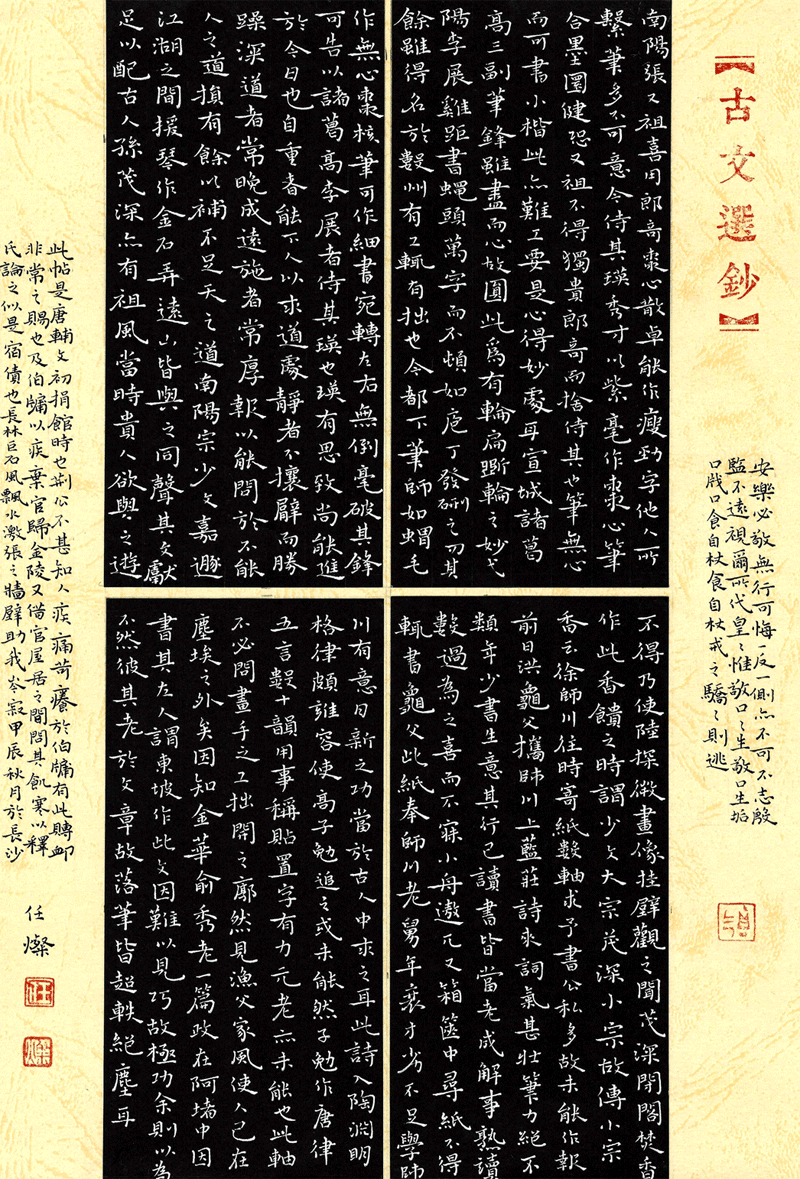 【古文選鈔】
安樂必敬無行可悔一反一側亦不可不志殷
監不遠視爾所代皇〻惟敬口〻生敬口生垢
口戕口食自杖食自杖戒之驕〻則逃
南陽張乂祖喜用郎奇棗心散卓能作瘦勁字他人所
繫筆多不可意今侍其瑛秀才以紫毫作棗心筆
含墨圓健恐乂祖不得獨貴郎奇而捨侍其也筆無心
而可書小楷此亦難工要是心得妙處耳宣城諸葛
高三副筆鋒雖盡而心故圓此爲有輪扁斲輪之妙弋
陽李展雞距書蠅頭萬字而不頓如庖丁發硎之刃其
餘雖得名於數州有工輒有拙也今都下筆師如蝟毛
作無心棗核筆可作細書宛轉左右無倒毫破其鋒
可告以諸葛高李展者侍其瑛也瑛有思致尚能進
於今日也自重者能下人以求道處靜者不攘臂而勝
躁深道者常晚成遠施者常厚報以能問於不能
人之道損有餘以補不足天之道南陽宗少文嘉遯
江湖之間援琴作金石弄遠山皆與之同聲其文獻
足以配古人孫茂深亦有祖風當時貴人欲與之遊
不得乃使陸探微畫像挂壁觀之聞茂深閉閣焚香
作此香饋之時謂少文大宗茂深小宗故傳小宗
香云徐師川往時寄紙數軸求予書公私多故未能作報
前日洪龜父攜師川上藍莊詩來詞氣甚壯筆力絕不
類年少書生意其行己讀書皆當老成解事熟讀
數過為之喜而不寐小舟遨兀又箱篋中尋紙不得
輒書龜父此紙奉師川老舅年衰才劣不足學師
川有意日新之功當於古人中求之耳此詩入陶淵明
格律頗雍容使高子勉追之或未能然子勉作唐律
五言數十韻用事穩貼置字有力元老亦未能也此軸
不必問畫手之工拙開之廓然見漁父家風使人已在
塵埃之外矣因知金華俞秀老一篇政在阿堵中因
書其左人謂東坡作此文因難以見巧故極功余則以為
不然彼其老於文章故落筆皆超軼絕塵耳
此帖是唐輔文初捐館時也荊公不甚知人疾痛苛癢於伯牖有此賻卹
非常之賜也及伯牖以疾棄官歸金陵又借官屋居之間問其飢寒以釋
氏論之似是宿債也長林巨石風飄水激張之牆壁助我岑寂甲辰秋月於長沙
任燦
任
燦